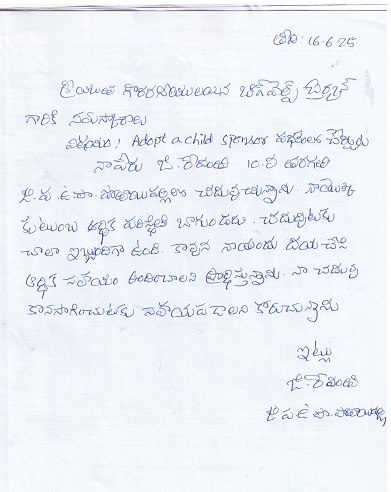 తేది: 16-6-25
శ్రీయుత గౌరవనీయులయిన
గారికి నమస్కారాలు
విషయం: Adopt a child sponsor పథకంలో చేర్చుట
నా పేరు జి. రేవంతి 10వ తరగతి
జి.ప.ఉ.పా. చదువుచున్నాను. నాయొక్క
కుటుంబ ఆర్థిక పరిస్థితి బాగుండదు. చదువుటకు
చాలా ఇబ్బందిగా ఉంది. కావున నాయందు దయచేసి
ఆర్థిక సహాయం అందించాలని ప్రార్థిస్తున్నాను. నా చదువు
కొనసాగించుటకు సహాయపడాలని కోరుచున్నాను
ఇట్లు
జి. రేవంతి
జి.ప.ఉ.పా.